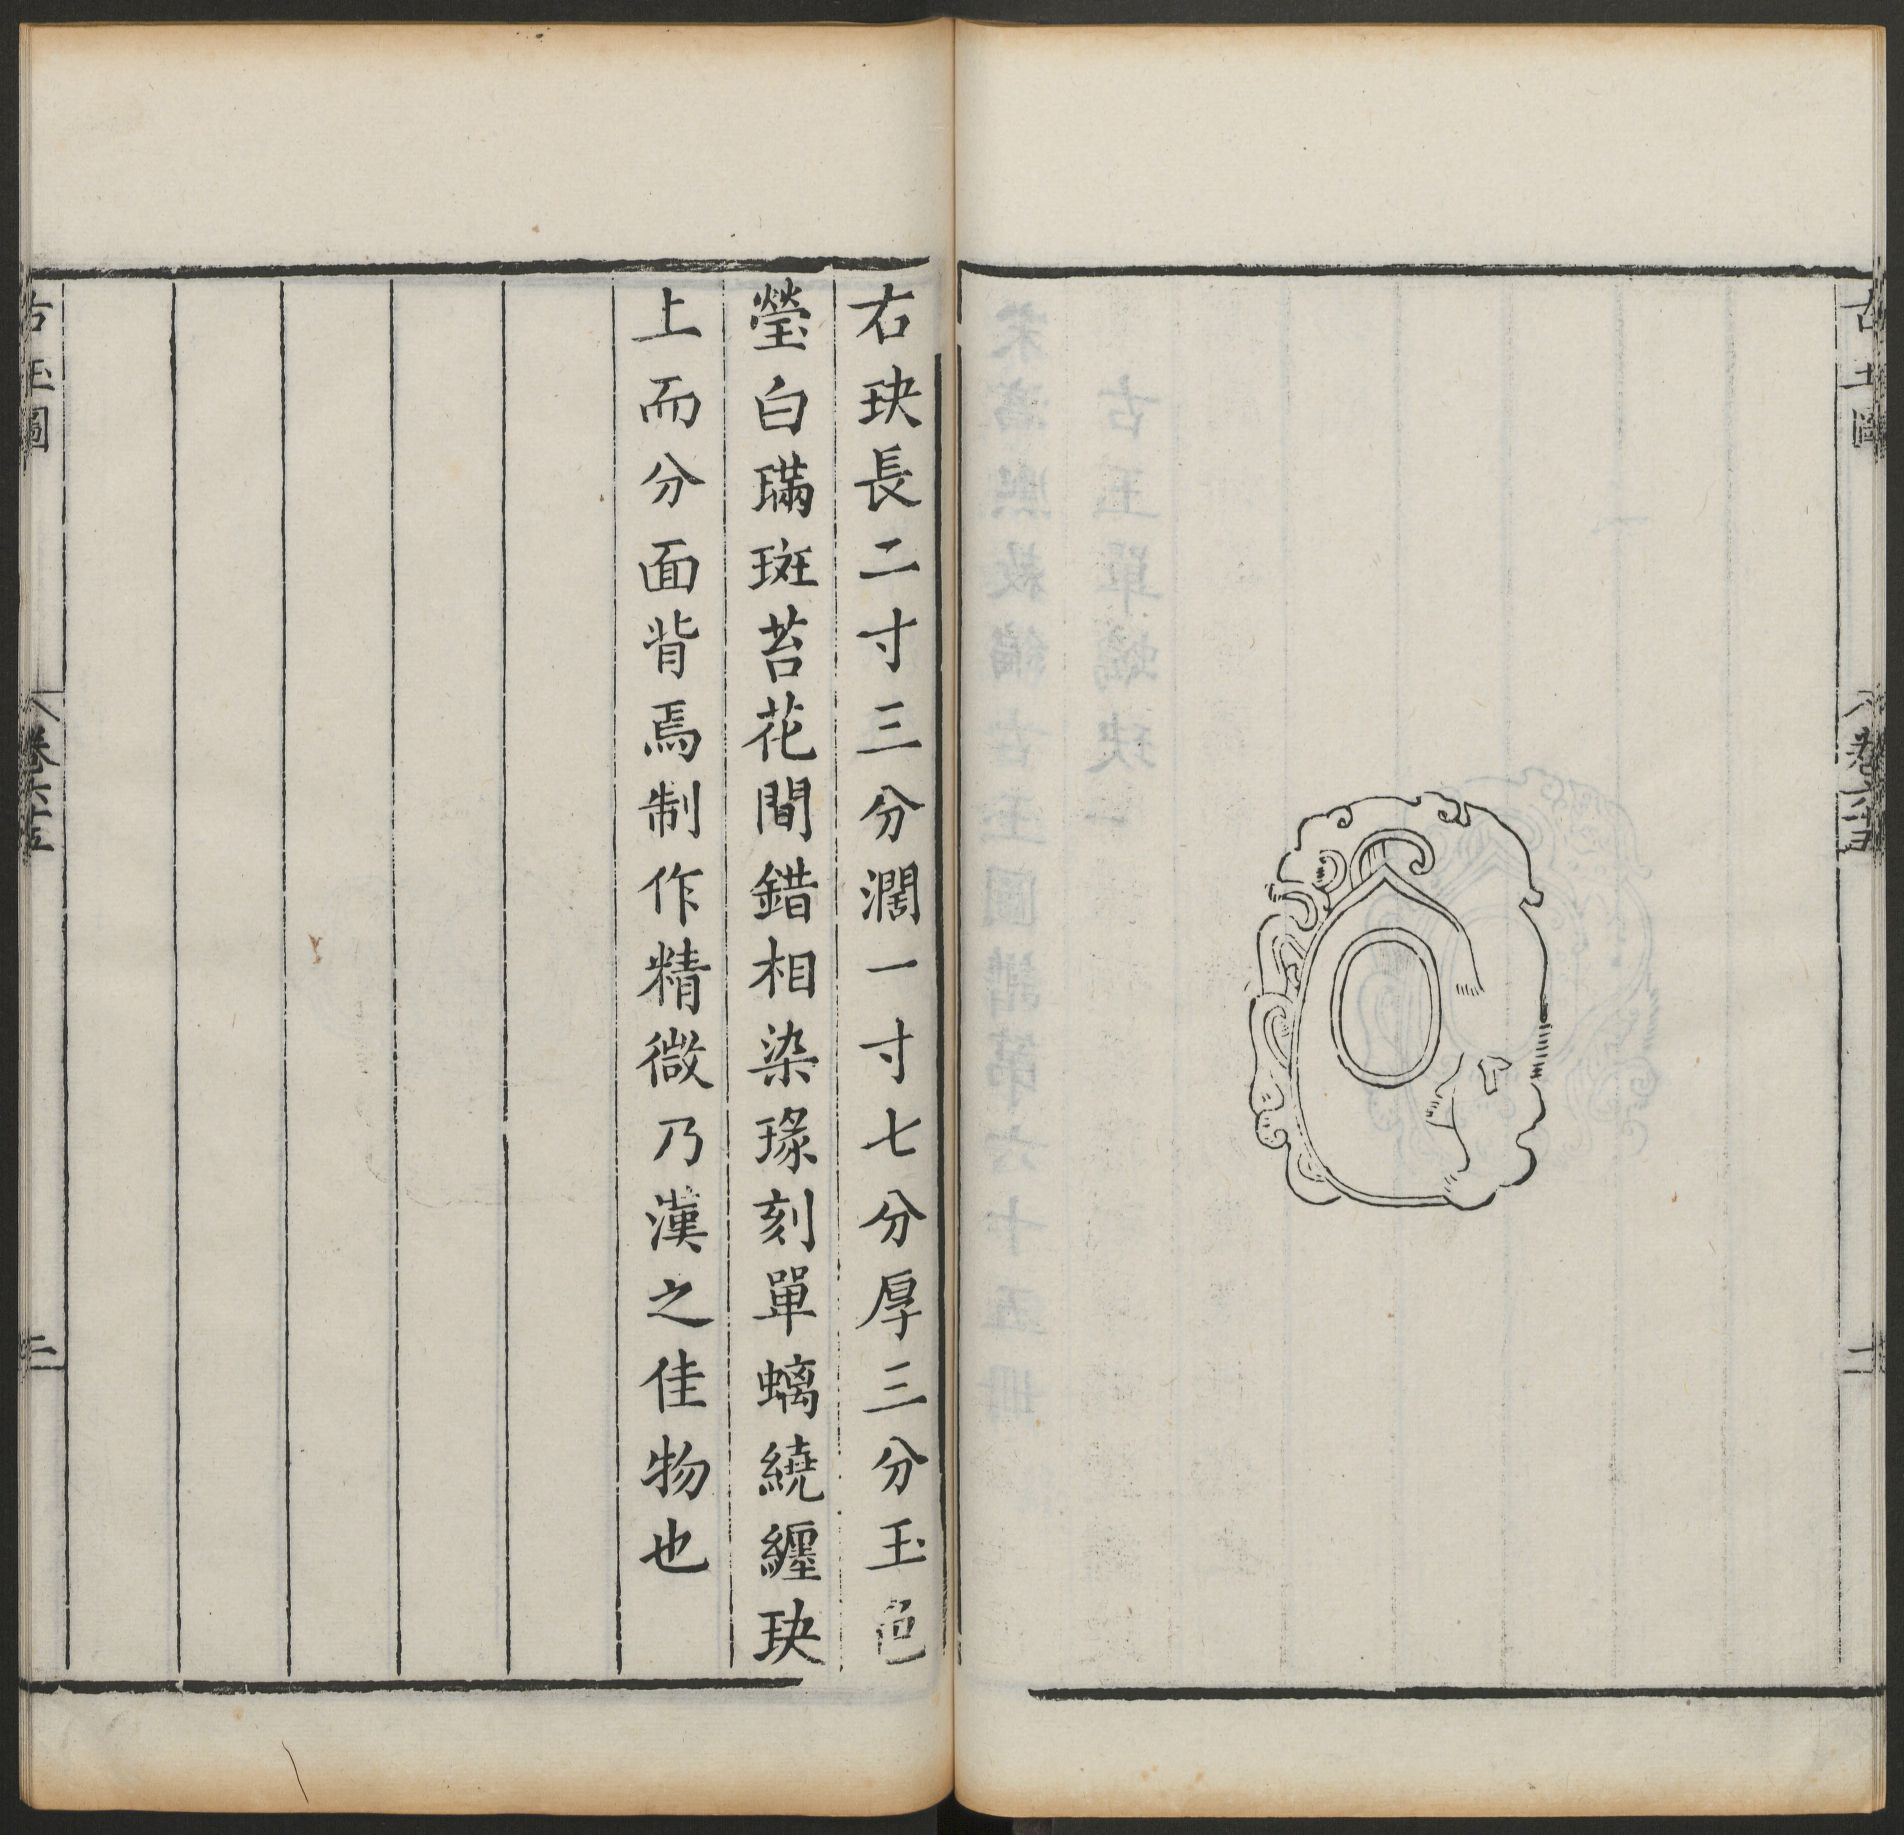 古玉圖
卷六十五
右玦長二寸三分濶一寸七分厚三分玉色
瑩白璊斑苔花間錯相染瑑刻單螭繞纏玦
上而分面背焉制作精微乃漢之佳物也
古玉圖
卷六十五
二